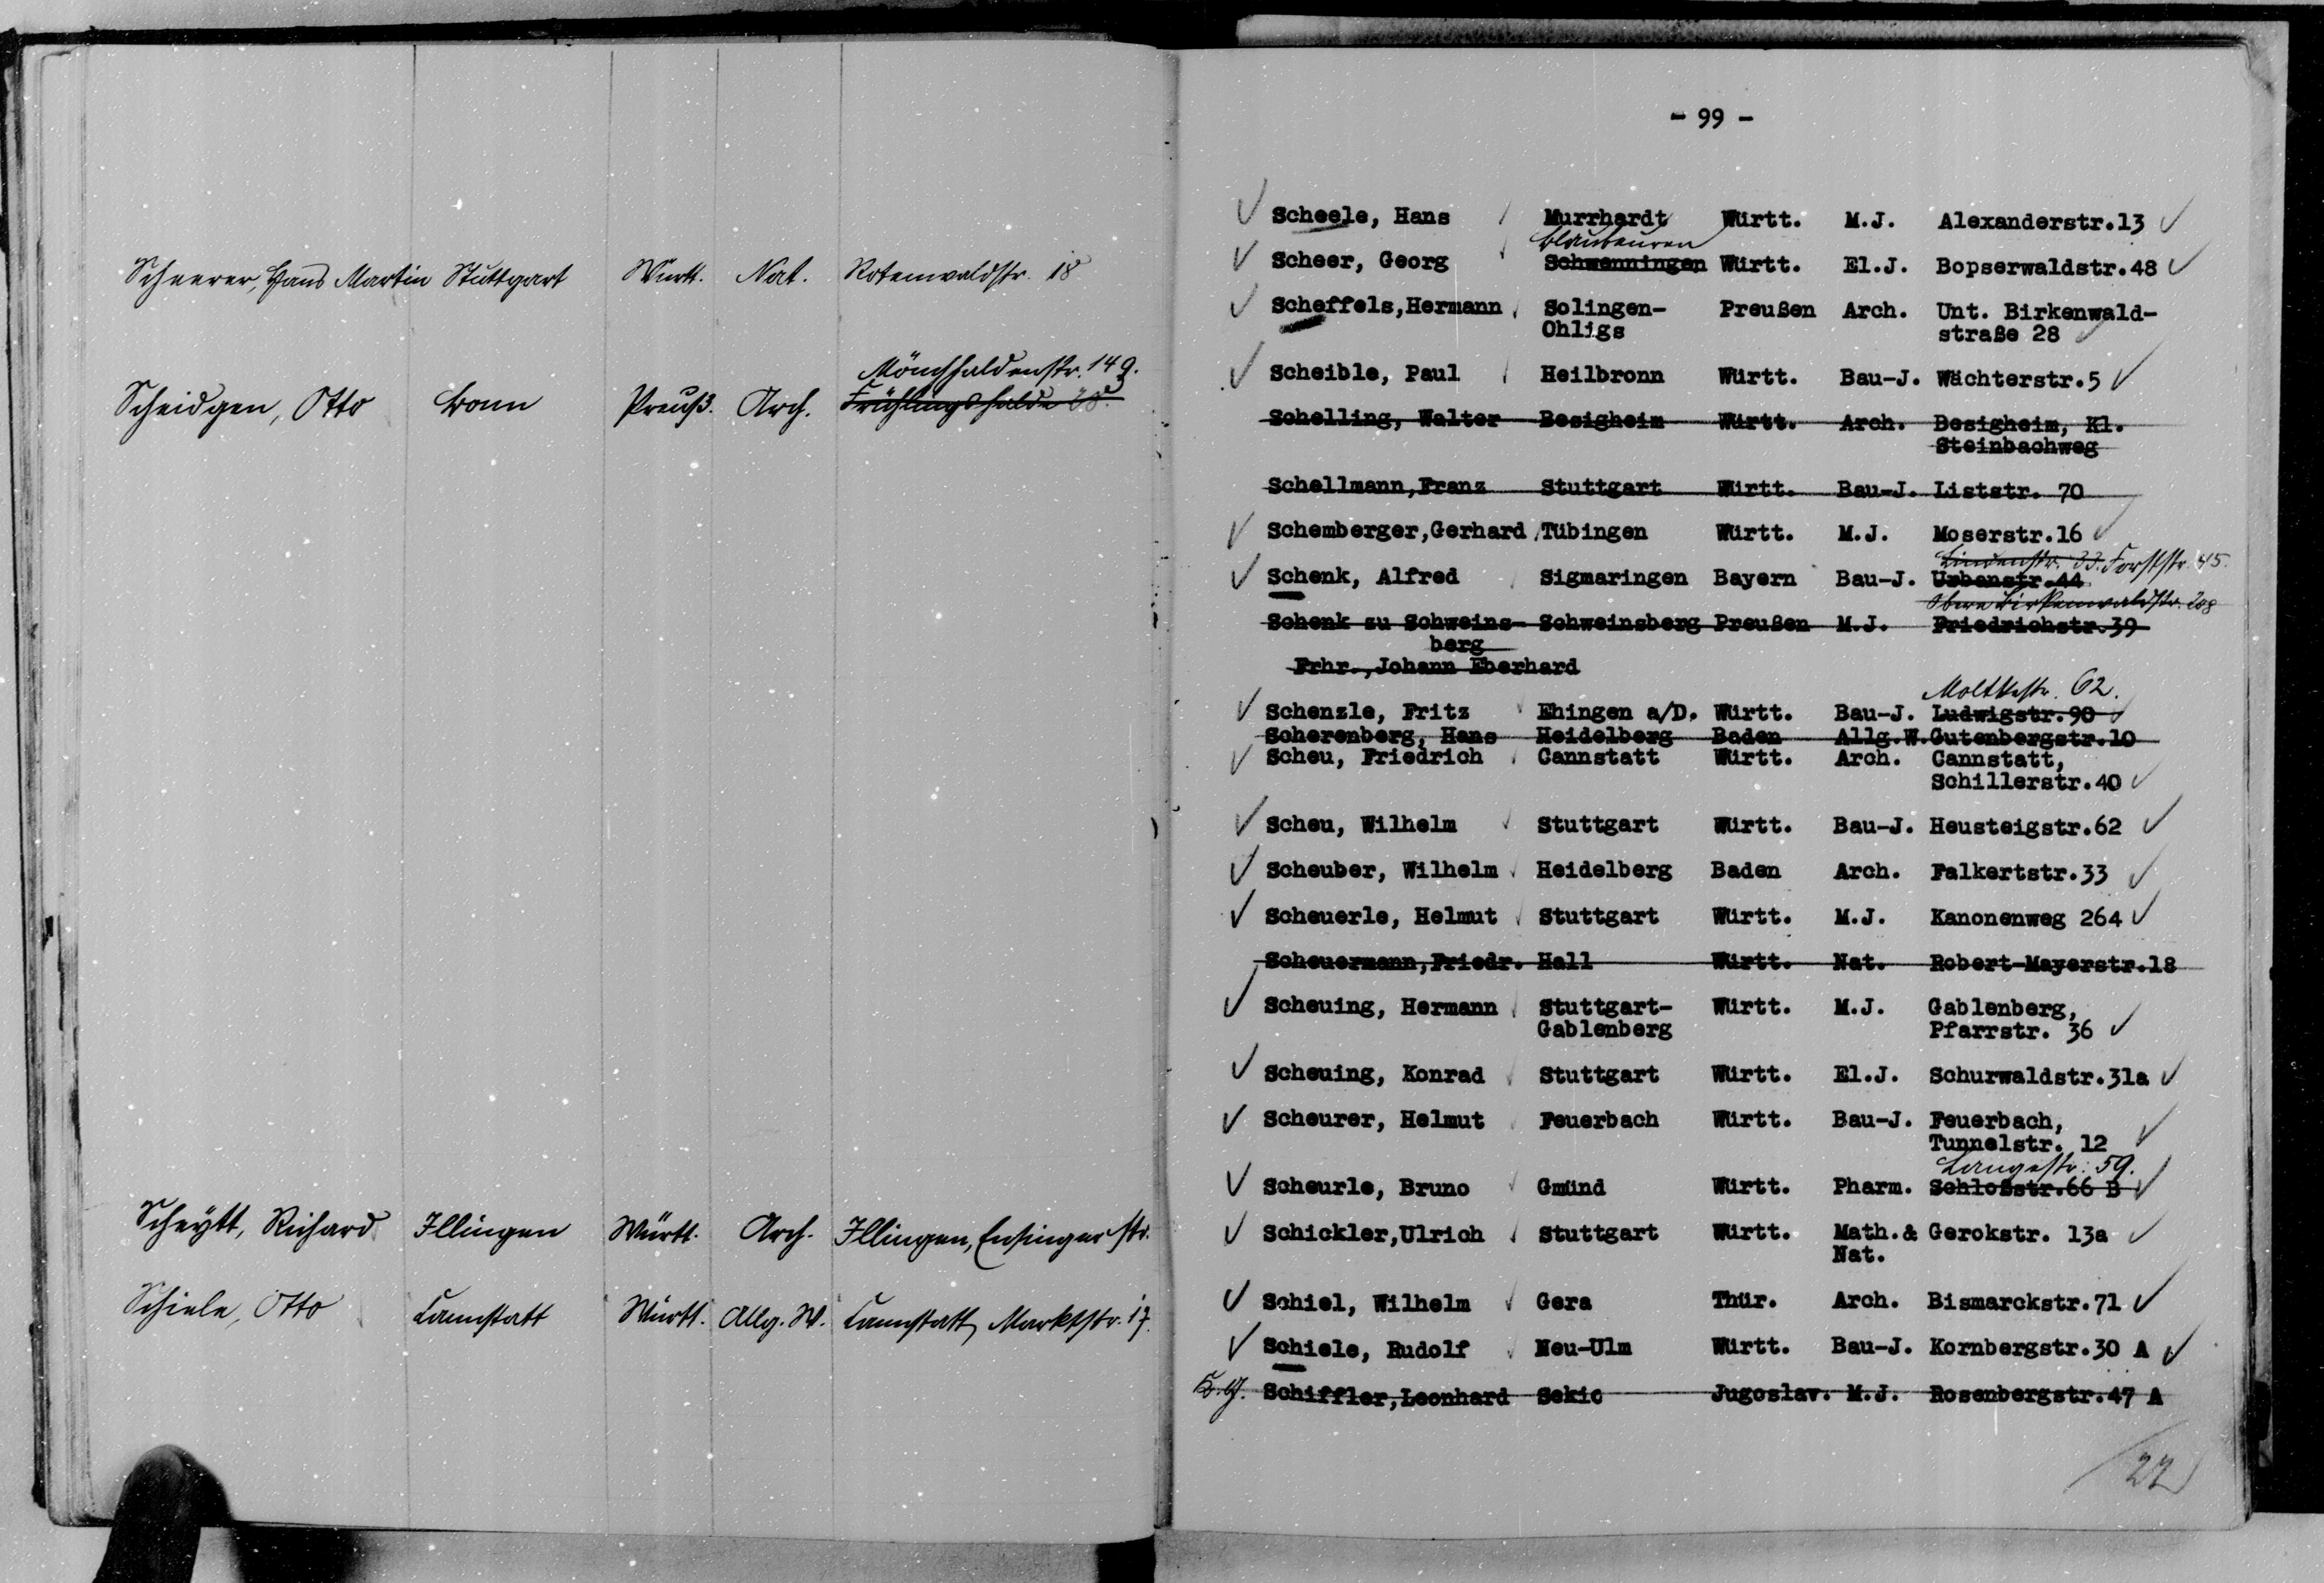 Scheerer, Hans Martin Stuttgart Württ. Nat. Rotenwaldstr. 18
Mönchhaldenstr. 149.
Scheidgen, Otto Bonn Preuß. Arch. Frühlingshalde
Scheytt, Richard Illingen Württ. Arch. Illingen, Ensingerstr.
Schiele, Otto Cannstatt Württ. Allg. W. Cannstatt, Marktstr. 17.
- 99 -
Scheele, Hans Murrhardt Württ. M.J. Alexanderstr.13
Blaubeuren
Scheer, Georg Schwenningen Württ. El.J. Bopserwaldstr.48
Scheffels,Hermann Solingen- Preußen Arch. Unt. Birkenwald-
Ohligs straße 28
Scheible, Paul Heilbronn Württ. Bau-J. Wächterstr.5
Schelling, Walter Besigheim Württ. Arch. Besigheim, Kl.
Steinbachweg
Schellmann,Franz Stuttgart Württ. Bau-J. Liststr. 70
Schemberger,Gerhard Tübingen Württ. M.J. Moserstr.16
Lindenstr. 33. Forststr. 45.
Schenk, Alfred Sigmaringen Bayern Bau-J. Urbanstr.44
Obere Birkenwaldstr. 208
Schenk zu Schweins- Schweinsberg Preußen M.J. Friedrichstr.39
berg
Frhr.,Johann Eberhard
Moltkestr. 62.
Schenzle, Fritz Ehingen a/D. Württ. Bau-J. Ludwigstr.90
Scherenberg, Hans Heidelberg Baden Allg.W.Gutenbergstr.10
Scheu, Friedrich Cannstatt Württ. Arch. Cannstatt,
Schillerstr.40
Scheu, Wilhelm Stuttgart Württ. Bau-J. Heusteigstr.62
Scheuber, Wilhelm Heidelberg Baden Arch. Falkertstr.33
Scheuerle, Helmut Stuttgart Württ. M.J. Kanonenweg 264
Scheuermann,Friedr. Hall Württ. Nat. Robert-Mayerstr.18
Scheuing, Hermann Stuttgart- Württ. M.J. Gablenberg,
Gablenberg Pfarrstr. 36
Scheuing, Konrad Stuttgart Württ. El.J. Schurwaldstr.31a
Scheurer, Helmut Feuerbach Württ. Bau-J. Feuerbach,
Tunnelstr. 12
Langestr. 59.
Scheurle, Bruno Gmünd Württ. Pharm. Schloßstr.66 B
Schickler,Ulrich Stuttgart Württ. Math.& Gerokstr. 13a
Nat.
Schiel, Wilhelm Gera Thür. Arch. Bismarckstr.71
Schiele, Rudolf Neu-Ulm Württ. Bau-J. Kornbergstr.30 A
Schiffler,Leonhard Sekic Jugoslav. M.J. Rosenbergstr.47 A
22